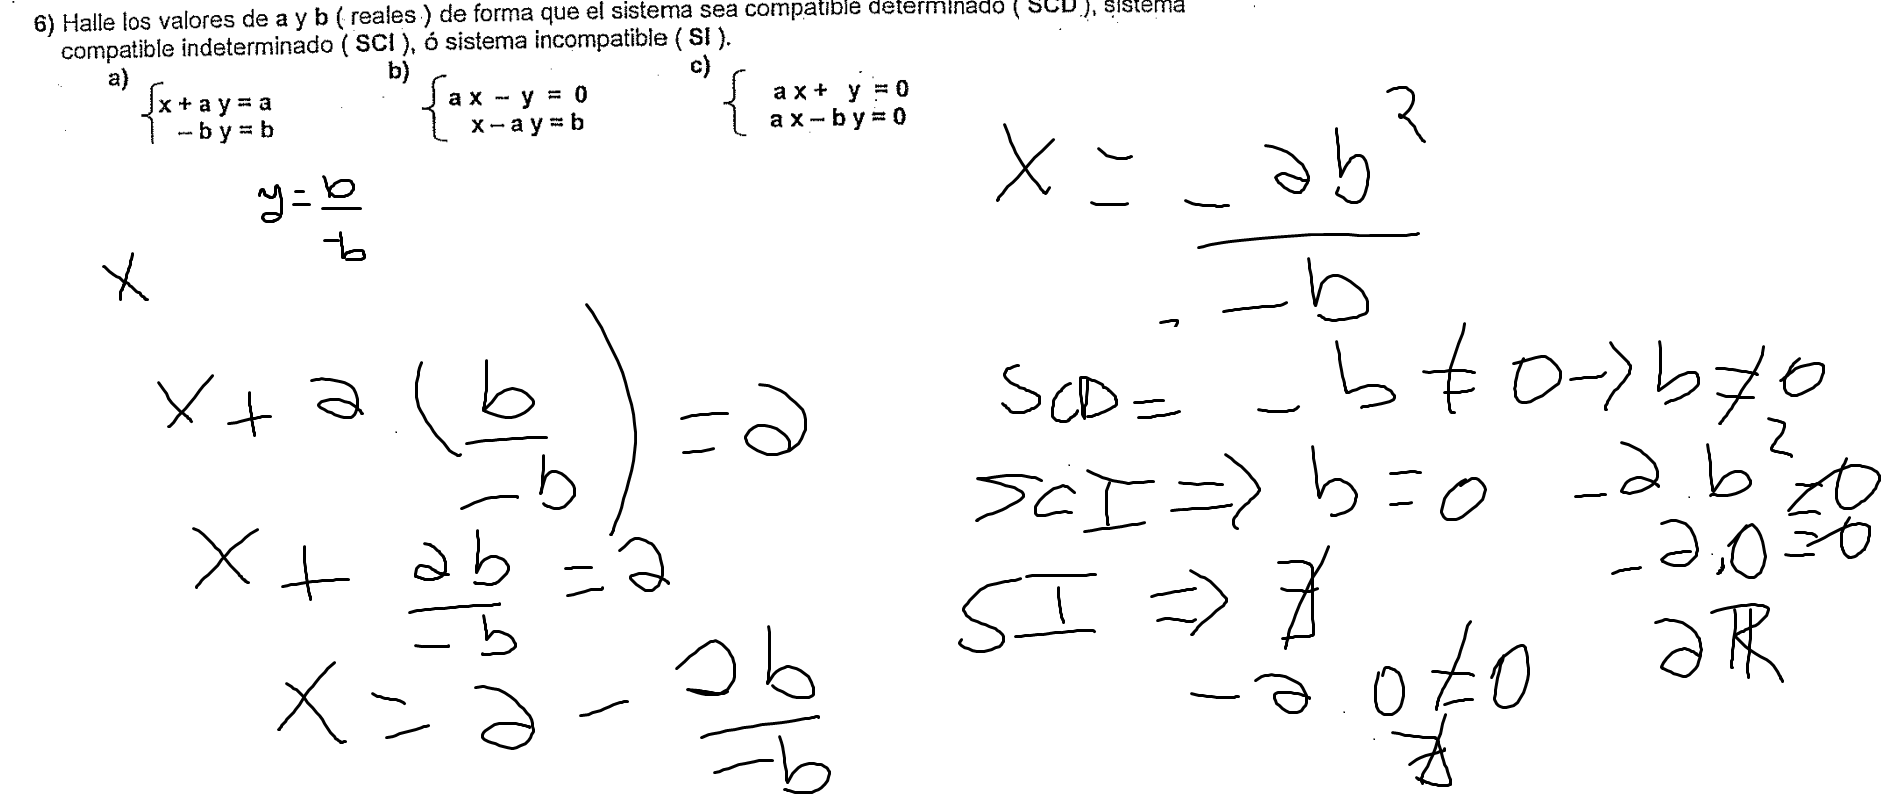 6) Halle los valores de a y b ( reales ) de forma que el sistema sea compatible determinado ( SCD ), sistema
compatible indeterminado ( SCI ), ó sistema incompatible ( SI ).
a)
x + a y = a
- b y = b
b)
a x - y = 0
x - a y = b
c)
a x + y = 0
a x - b y = 0
y = b
-b
x
x + a ( b
-b ) = a
x + ab
-b = a
x = a - ab
-b
x = -ab²
-b
SCD = -b ≠ 0 → b ≠ 0
SCI ⇒ b = 0 -a.b² = 0
-a.0 = 0
aℝ
SI ⇒ ∄
-a.0 ≠ 0
∄